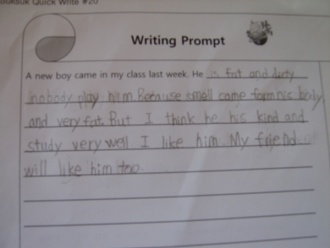 Quick Write #20
Writing Prompt
A new boy came in my class last week. He is fat and dirty
nobody play him Because smell came form his body
and very fat. But I think he his kind and
study very well I like him. My friend
will like him too.